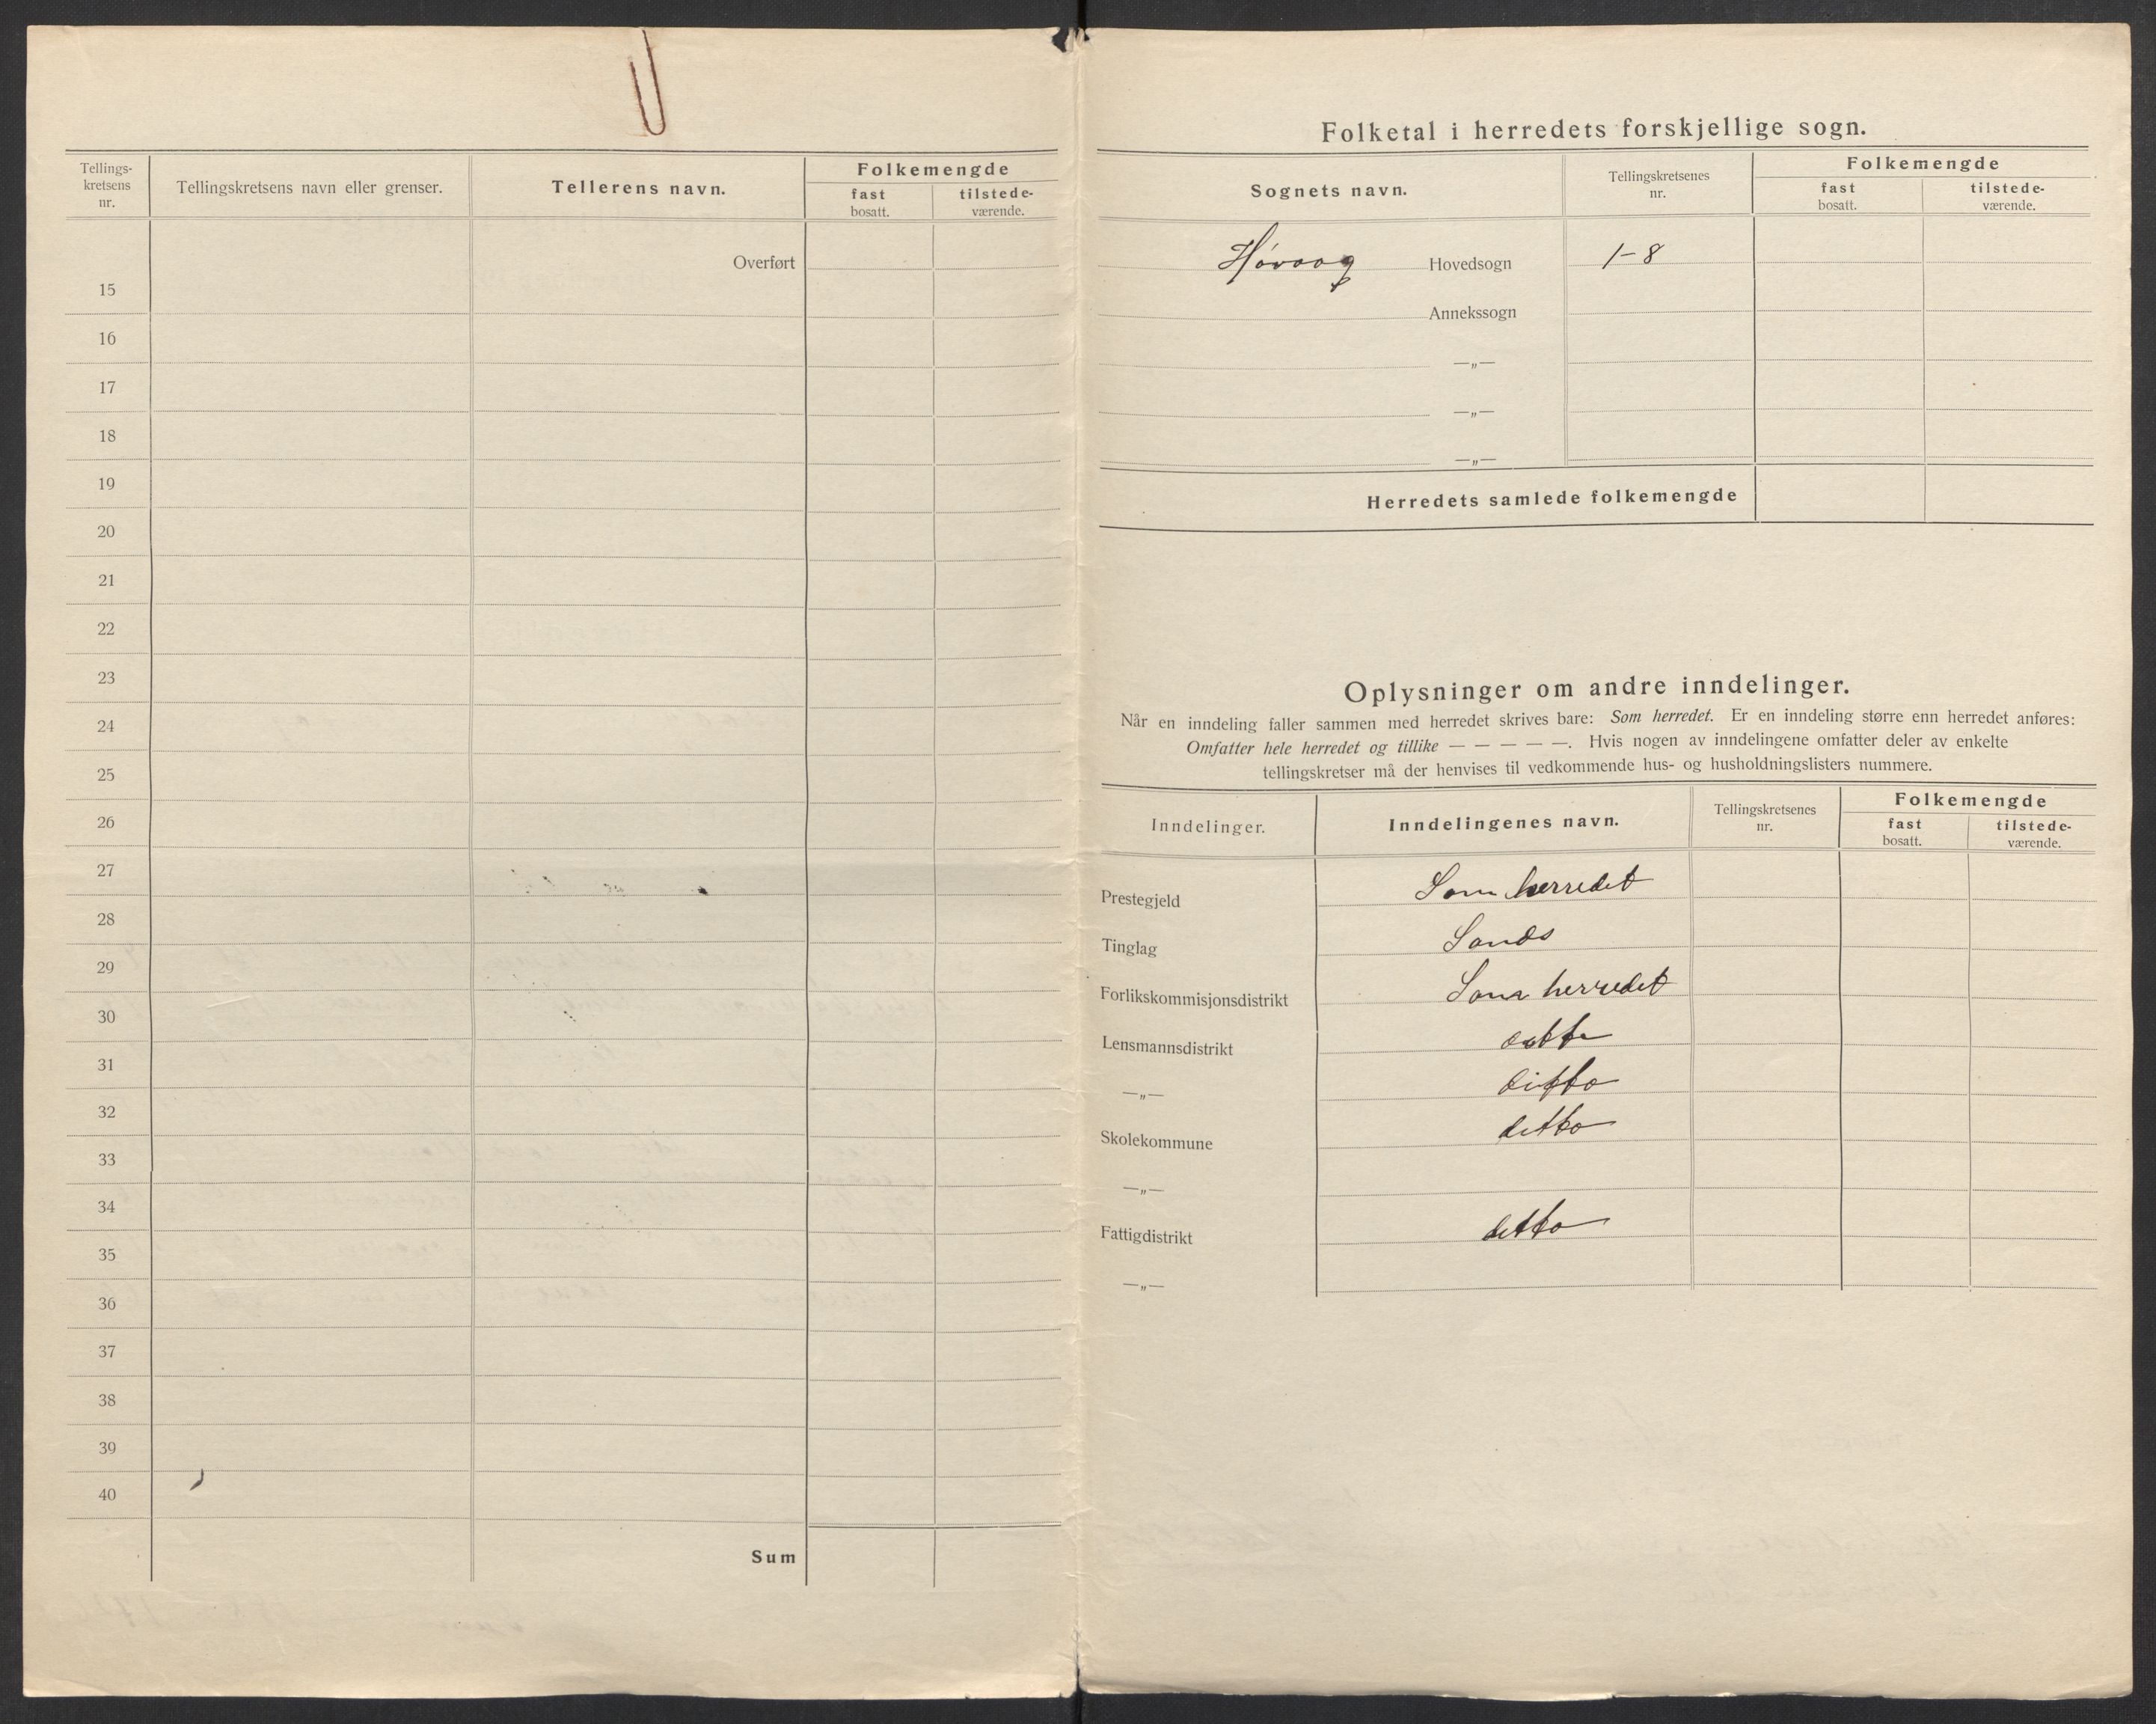 Tellings-
kretsens
nr.
Tellingskretsens navn eller grenser.
Tellerens navn.
Folkemengde
fast
bosatt.
tilstede-
værende.
Overført
15
16
17
18
19
20
21
22
23
24
25
26
27
28
29
30
31
32
33
34
35
36
37
38
39
40
Sum
Folketal i herredets forskjellige sogn.
Sognets navn.
Tellingskretsenes
nr.
Folkemengde
fast
bosatt.
tilstede-
værende.
Høvaag Hovedsogn 1-8
Annekssogn
—„—
—„—
—„—
Herredets samlede folkemengde
Oplysninger om andre inndelinger.
Når en inndeling faller sammen med herredet skrives bare: Som herredet. Er en inndeling større enn herredet anføres:
Omfatter hele herredet og tillike — — — — —. Hvis nogen av inndelingene omfatter deler av enkelte
tellingskretser må der henvises til vedkommende hus- og husholdningslisters nummere.
Inndelinger.
Inndelingenes navn.
Tellingskretsenes
nr.
Folkemengde
fast
bosatt.
tilstede-
værende.
Prestegjeld Som herredet
Tinglag Sands
Forlikskommisjonsdistrikt Som herredet
Lensmannsdistrikt ditto
—„— ditto
Skolekommune ditto
—„—
Fattigdistrikt ditto
—„—